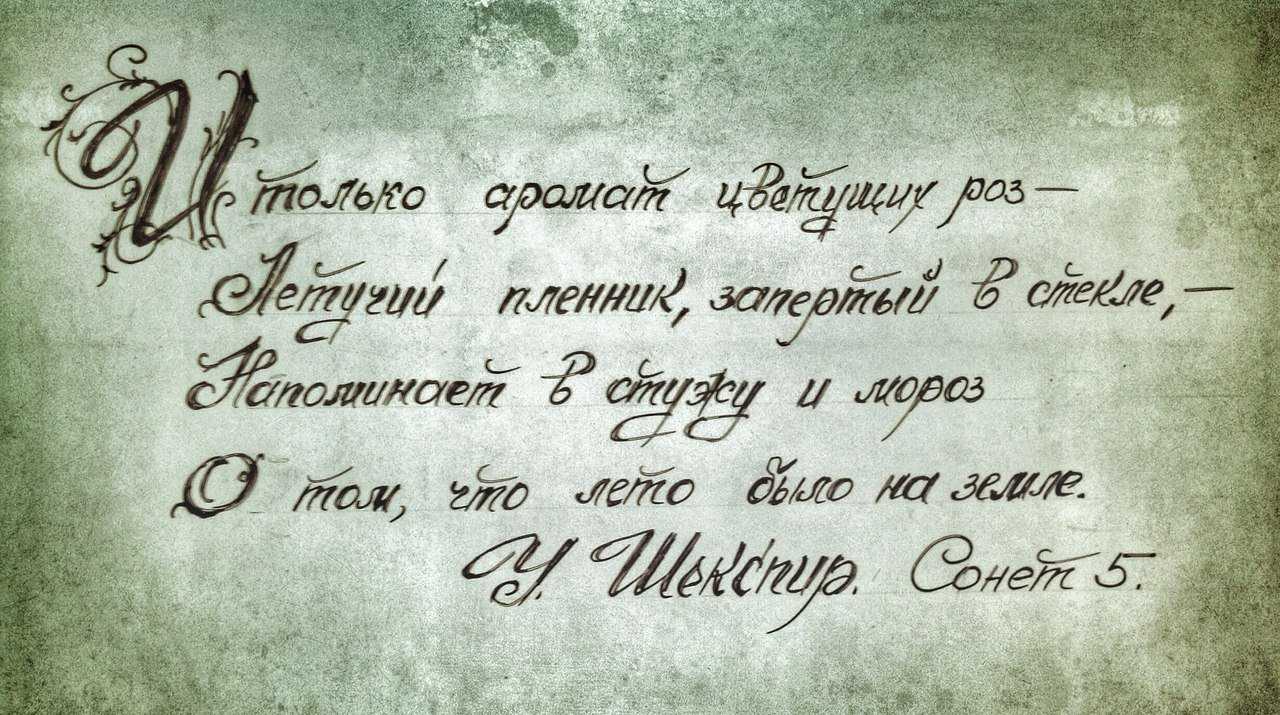 И только аромат цветущих роз —
Летучий пленник, запертый в стекле, —
Напоминает в стужу и мороз
О том, что лето было на земле.
У. Шекспир. Сонет 5.